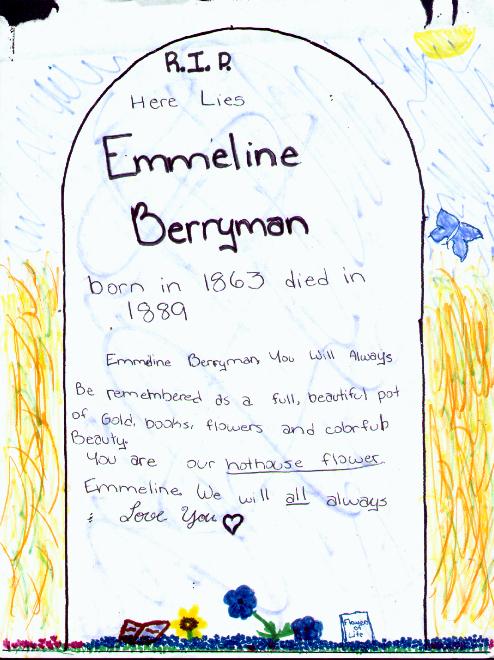 R.I.P.
Here Lies
Emmeline
Berryman
born in 1863 died in
1889
Emmeline Berryman, You Will Always
Be remembered as a full, beautiful pot
of Gold, books, flowers and colorful
Beauty.
You are our hothouse flower.
Emmeline, We will all always
Love You
Flowers of Life